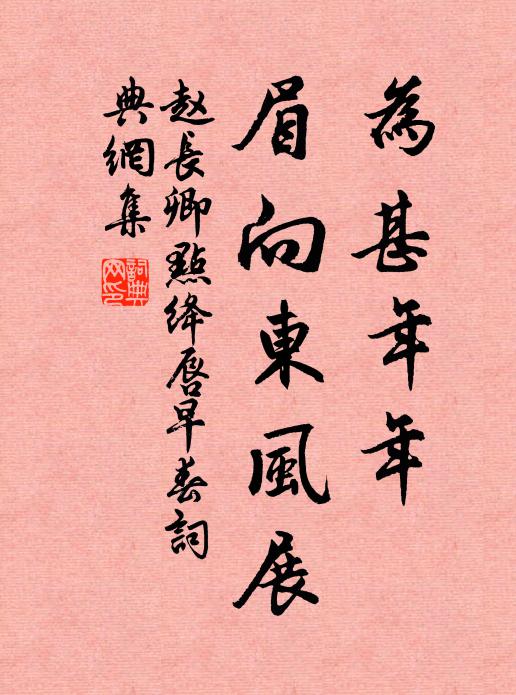 為甚年年
眉向東風展
赵長卿點绛唇早春詞
典網集
詞典
网印